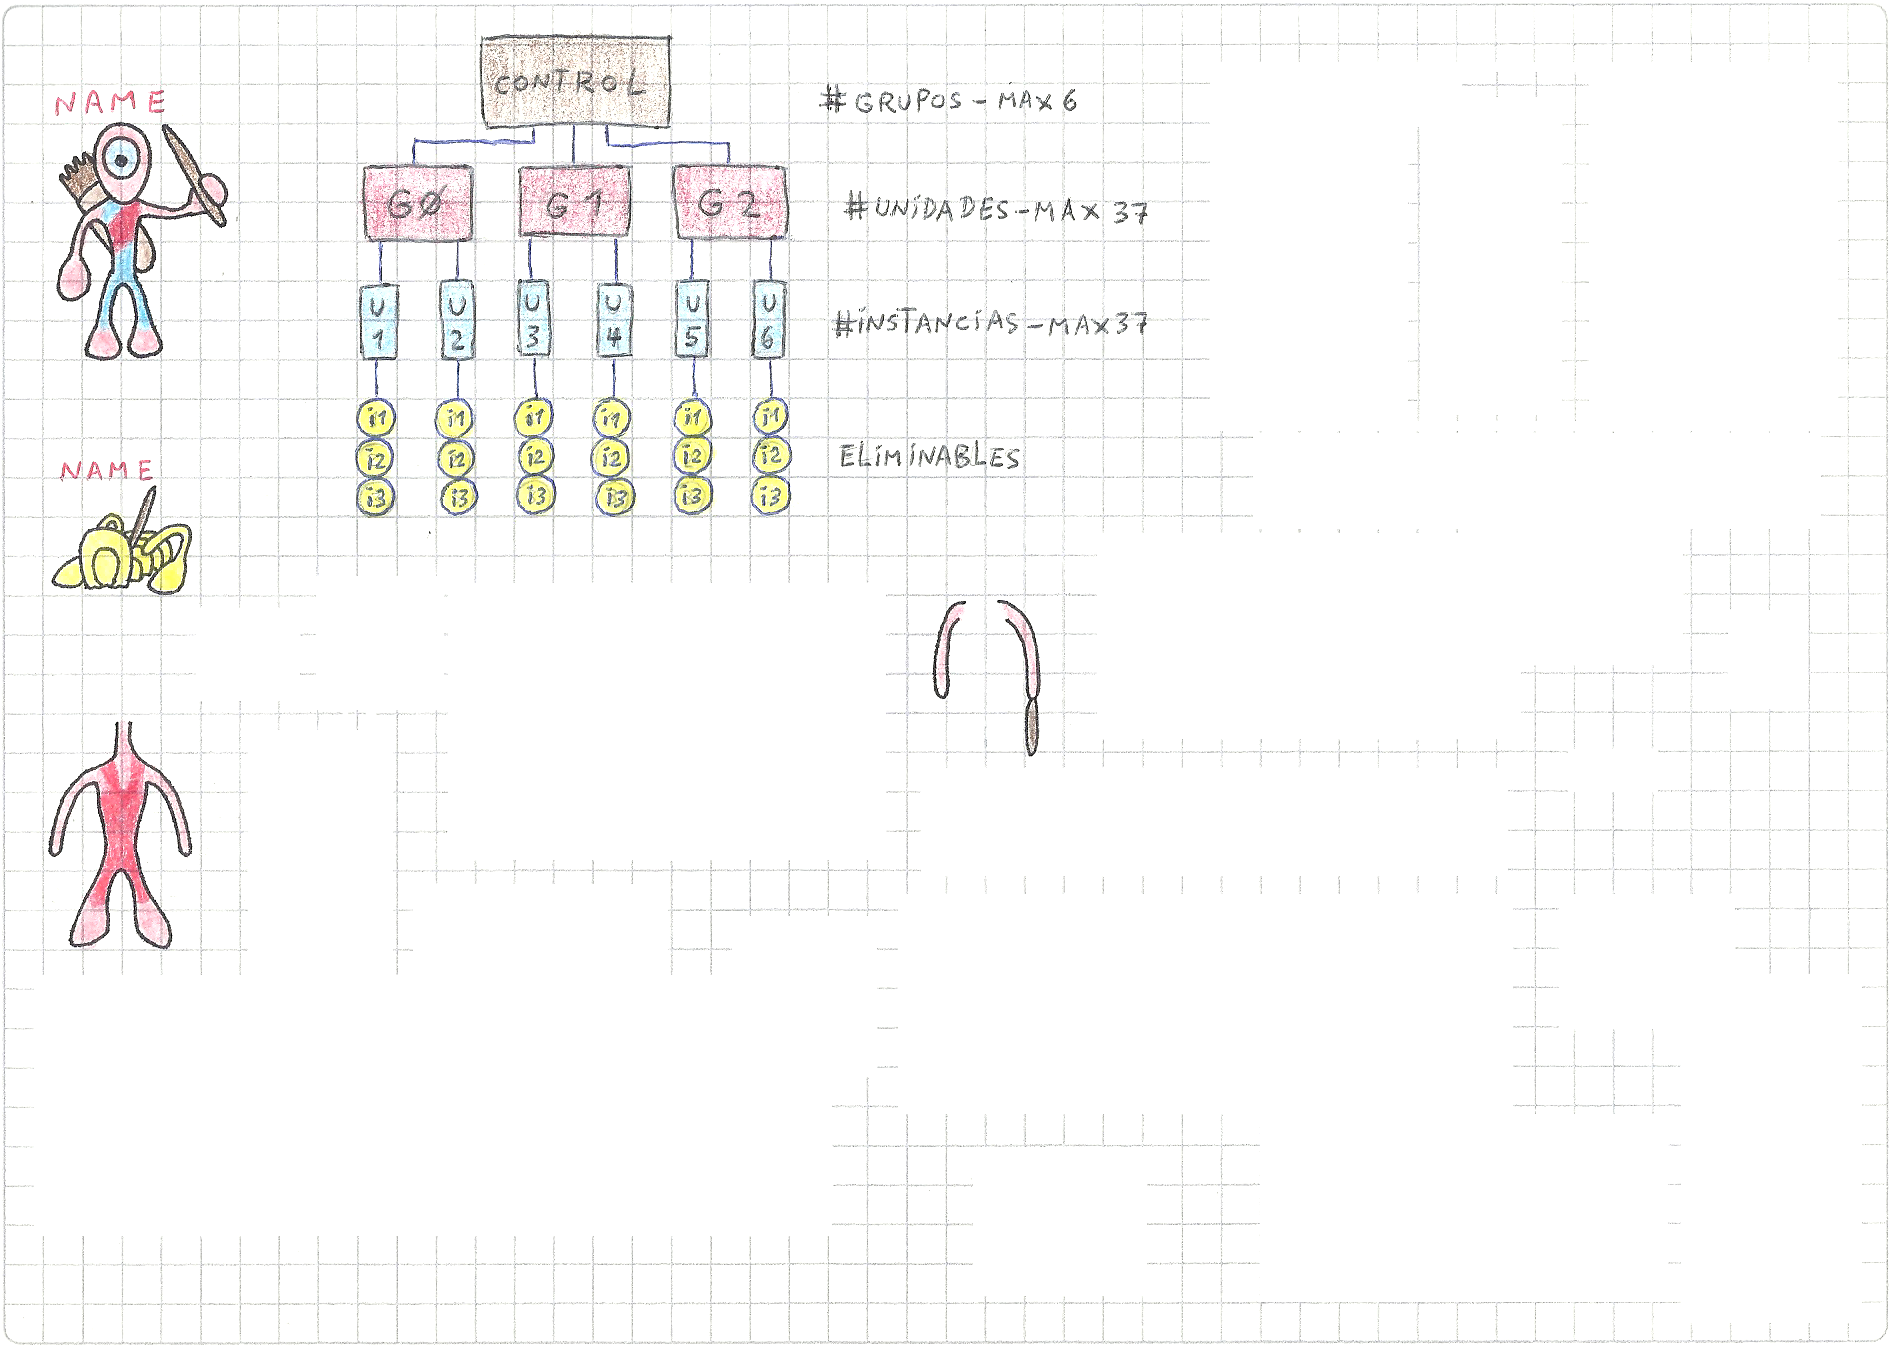 NAME
CONTROL
#GRUPOS - MAX 6
GØ G1 G2
#UNIDADES - MAX 37
U1 U2 U3 U4 U5 U6
#INSTANCIAS - MAX 37
i1 i1 i1 i1 i1 i1
i2 i2 i2 i2 i2 i2
i3 i3 i3 i3 i3 i3
ELIMINABLES
NAME